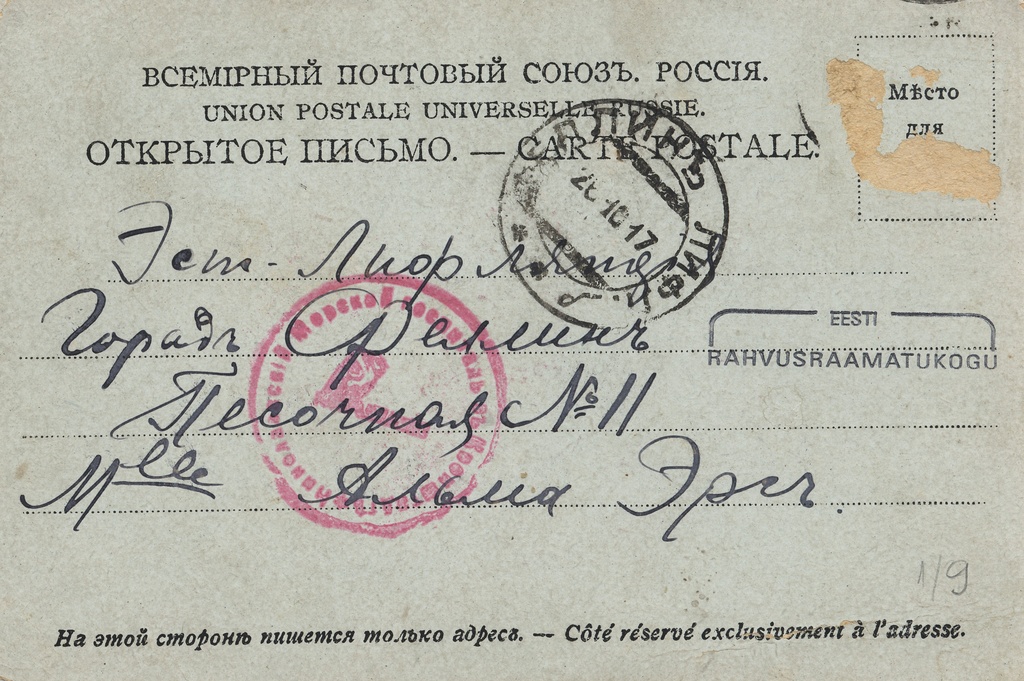 ВСЕМІРНЫЙ ПОЧТОВЫЙ СОЮЗЪ. РОССІЯ.
UNION POSTALE UNIVERSELLE RUSSIE.
ОТКРЫТОЕ ПИСЬМО. — CARTE POSTALE.
Мѣсто
для
ЛИФЛ.
26.10.17
Эст-Лифлянд
Горадъ Феллинъ
EESTI
RAHVUSRAAMATUKOGU
Песочная № 11
Mlle Альма Эргъ.
1/9
На этой сторонѣ пишется только адресъ. — Côté réservé exclusivement à l'adresse.